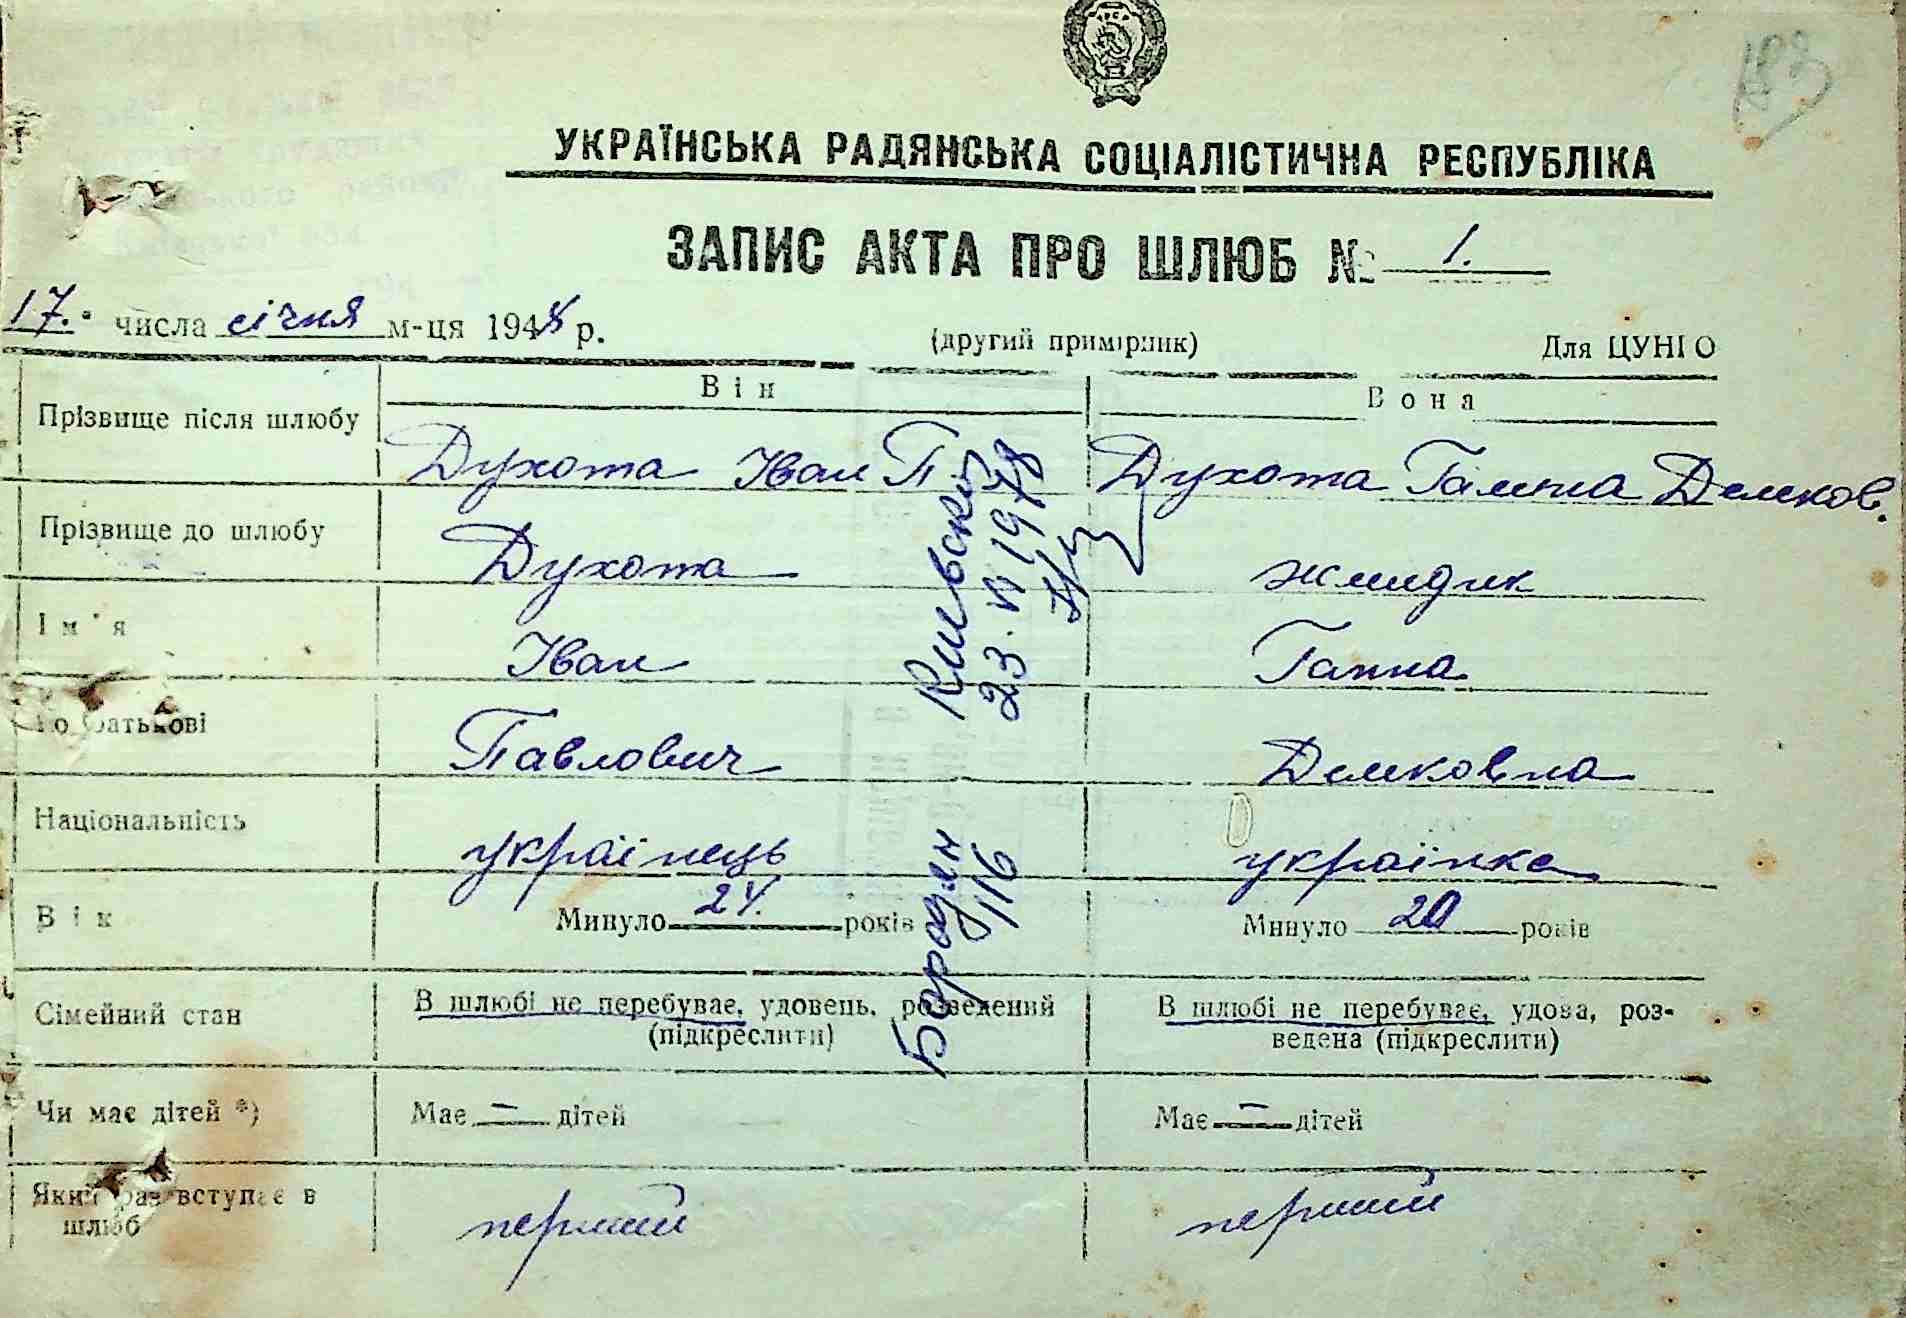 УКРАЇНСЬКА РАДЯНСЬКА СОЦІАЛІСТИЧНА РЕСПУБЛІКА
ЗАПИС АКТА ПРО ШЛЮБ № 1.
17. числа січня м-ця 1948 р.
(другий примірник)
Для ЦУНГО
Він
Вона
Прізвище після шлюбу
Духота Іван П
Духота Ганна Демков.
Прізвище до шлюбу
Духота
Жмидик
Ім'я
Іван
Ганна
По батькові
Павлович
Демковна
Національність
українець
українка
Вік
Минуло 24. років
Минуло 20 років
Сімейний стан
В шлюбі не перебуває, удовець, розведений
(підкреслити)
В шлюбі не перебуває, удова, роз-
ведена (підкреслити)
Чи має дітей *)
Має — дітей
Має — дітей
Який раз вступає в
шлюб
перший
перший
Бородян
116
23. VI 1948